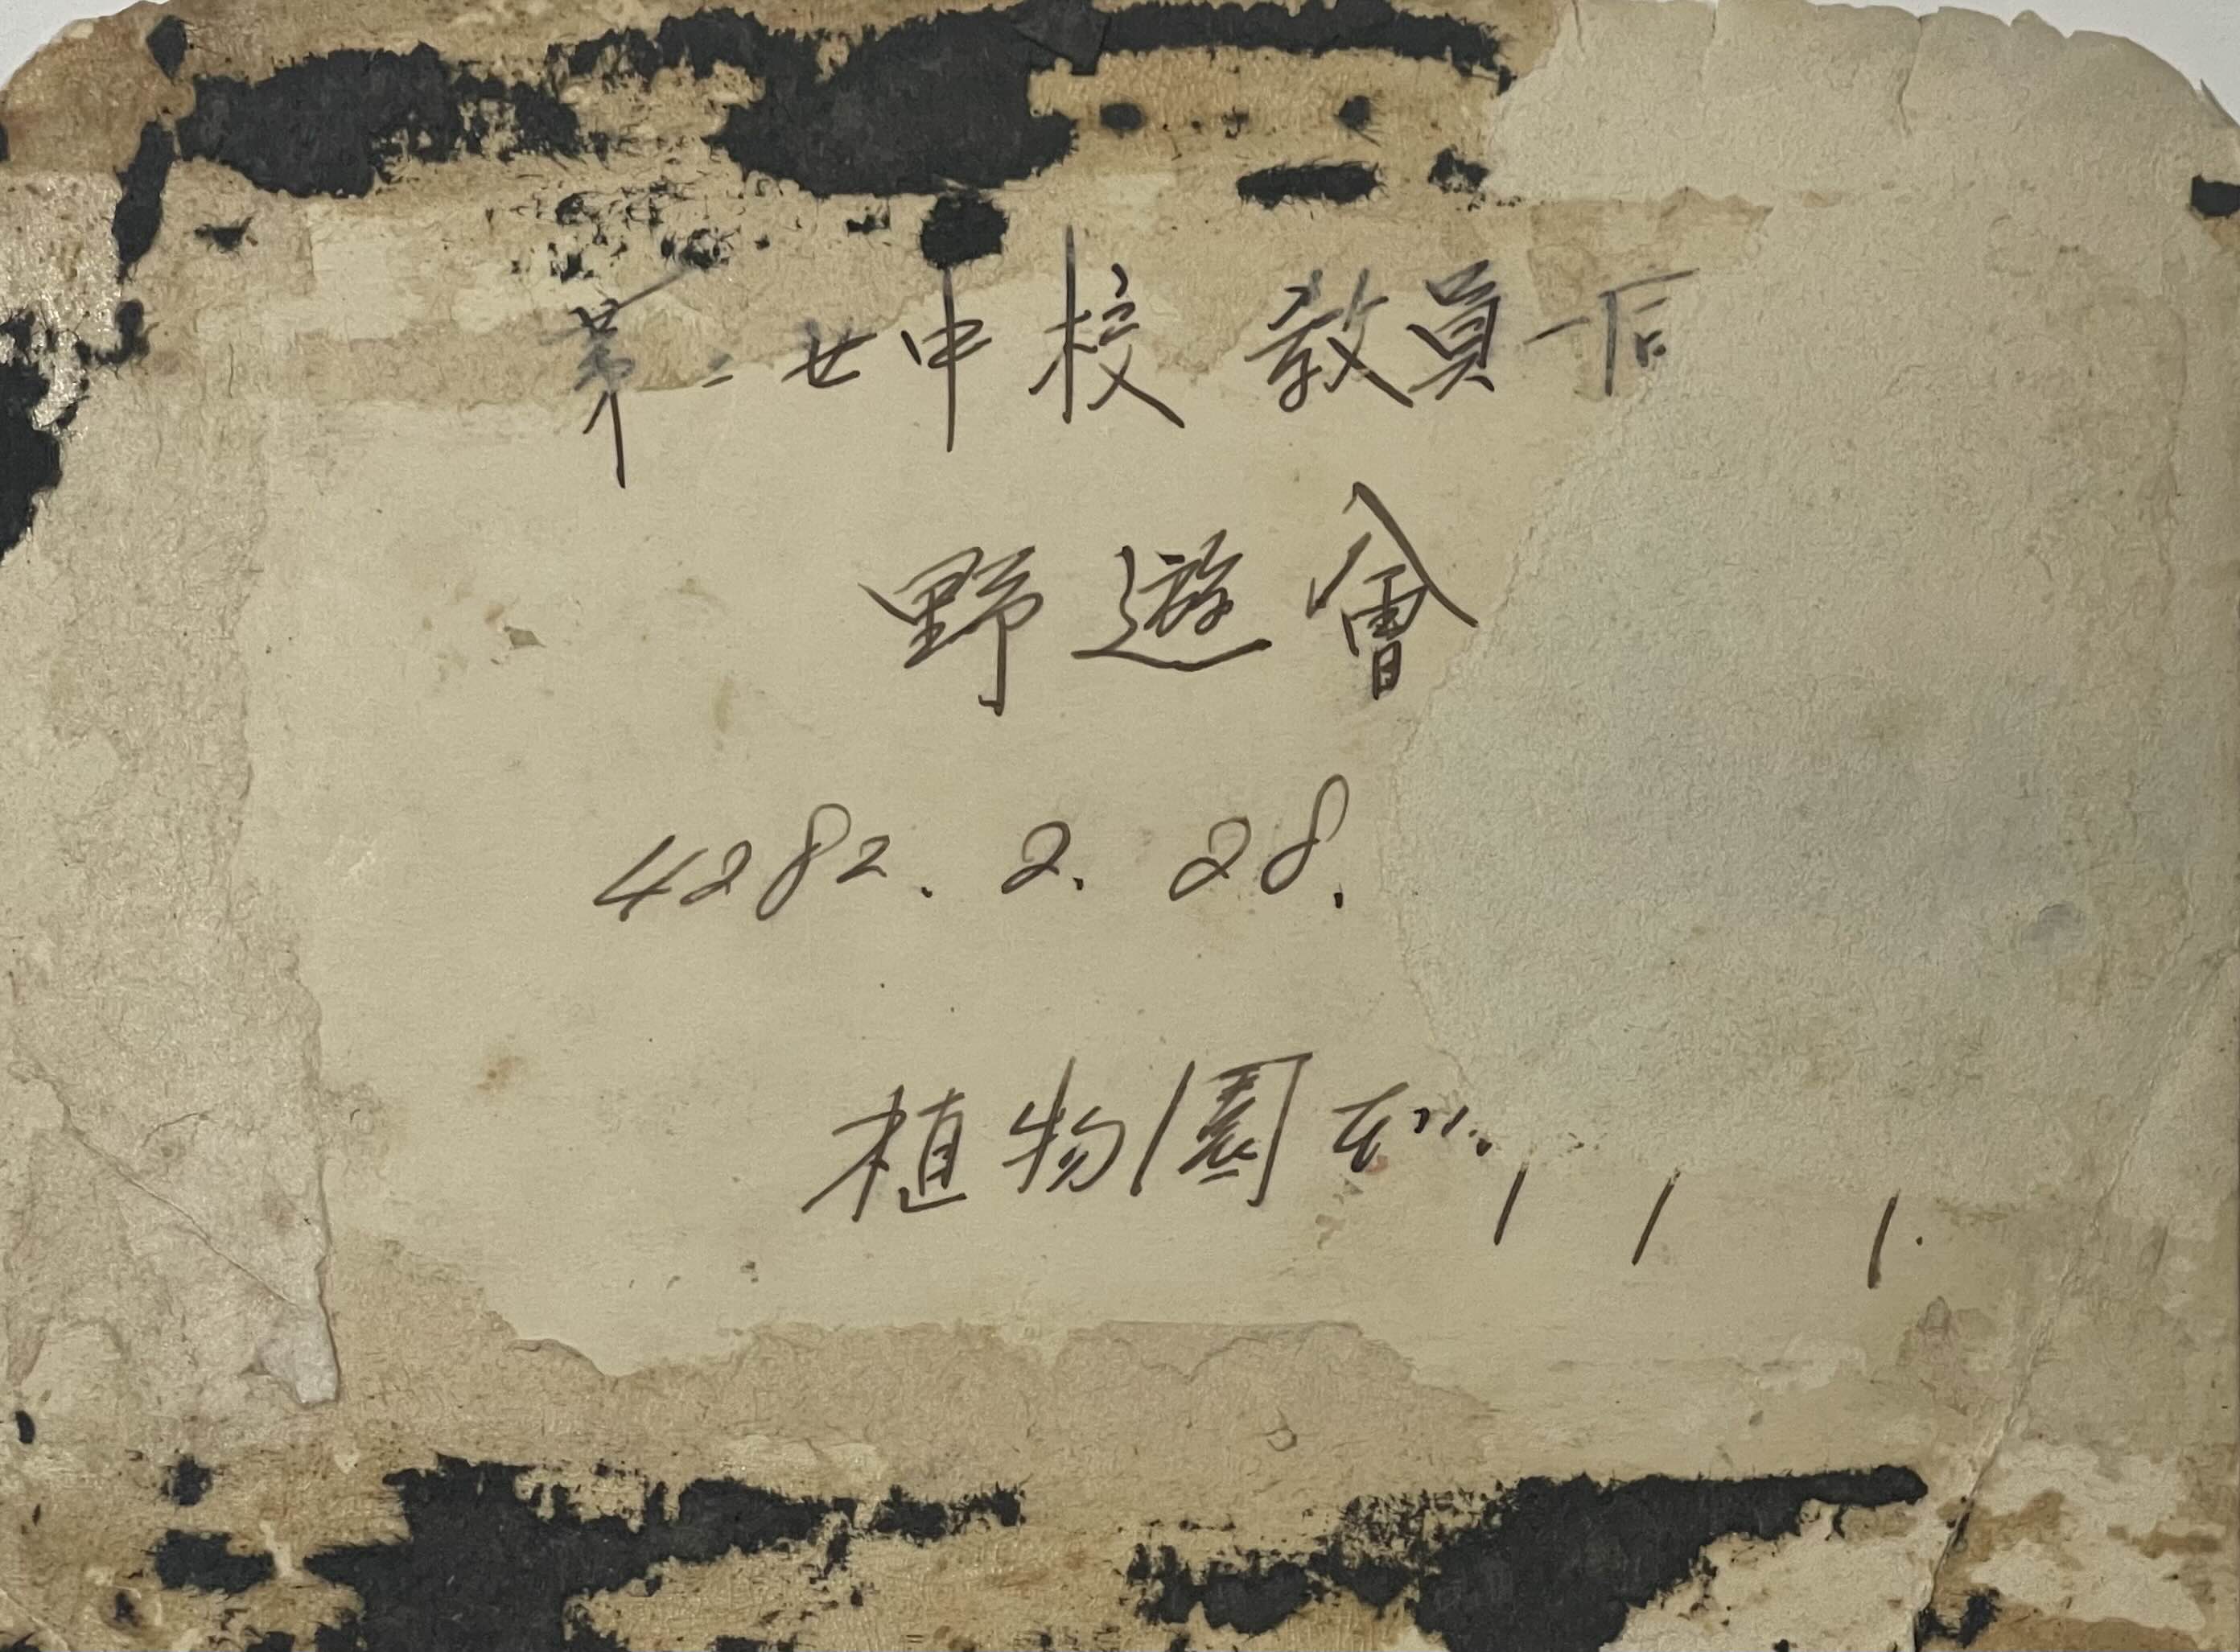 第二女中校 敎員一同
野遊會
4282. 2. 28.
植物園